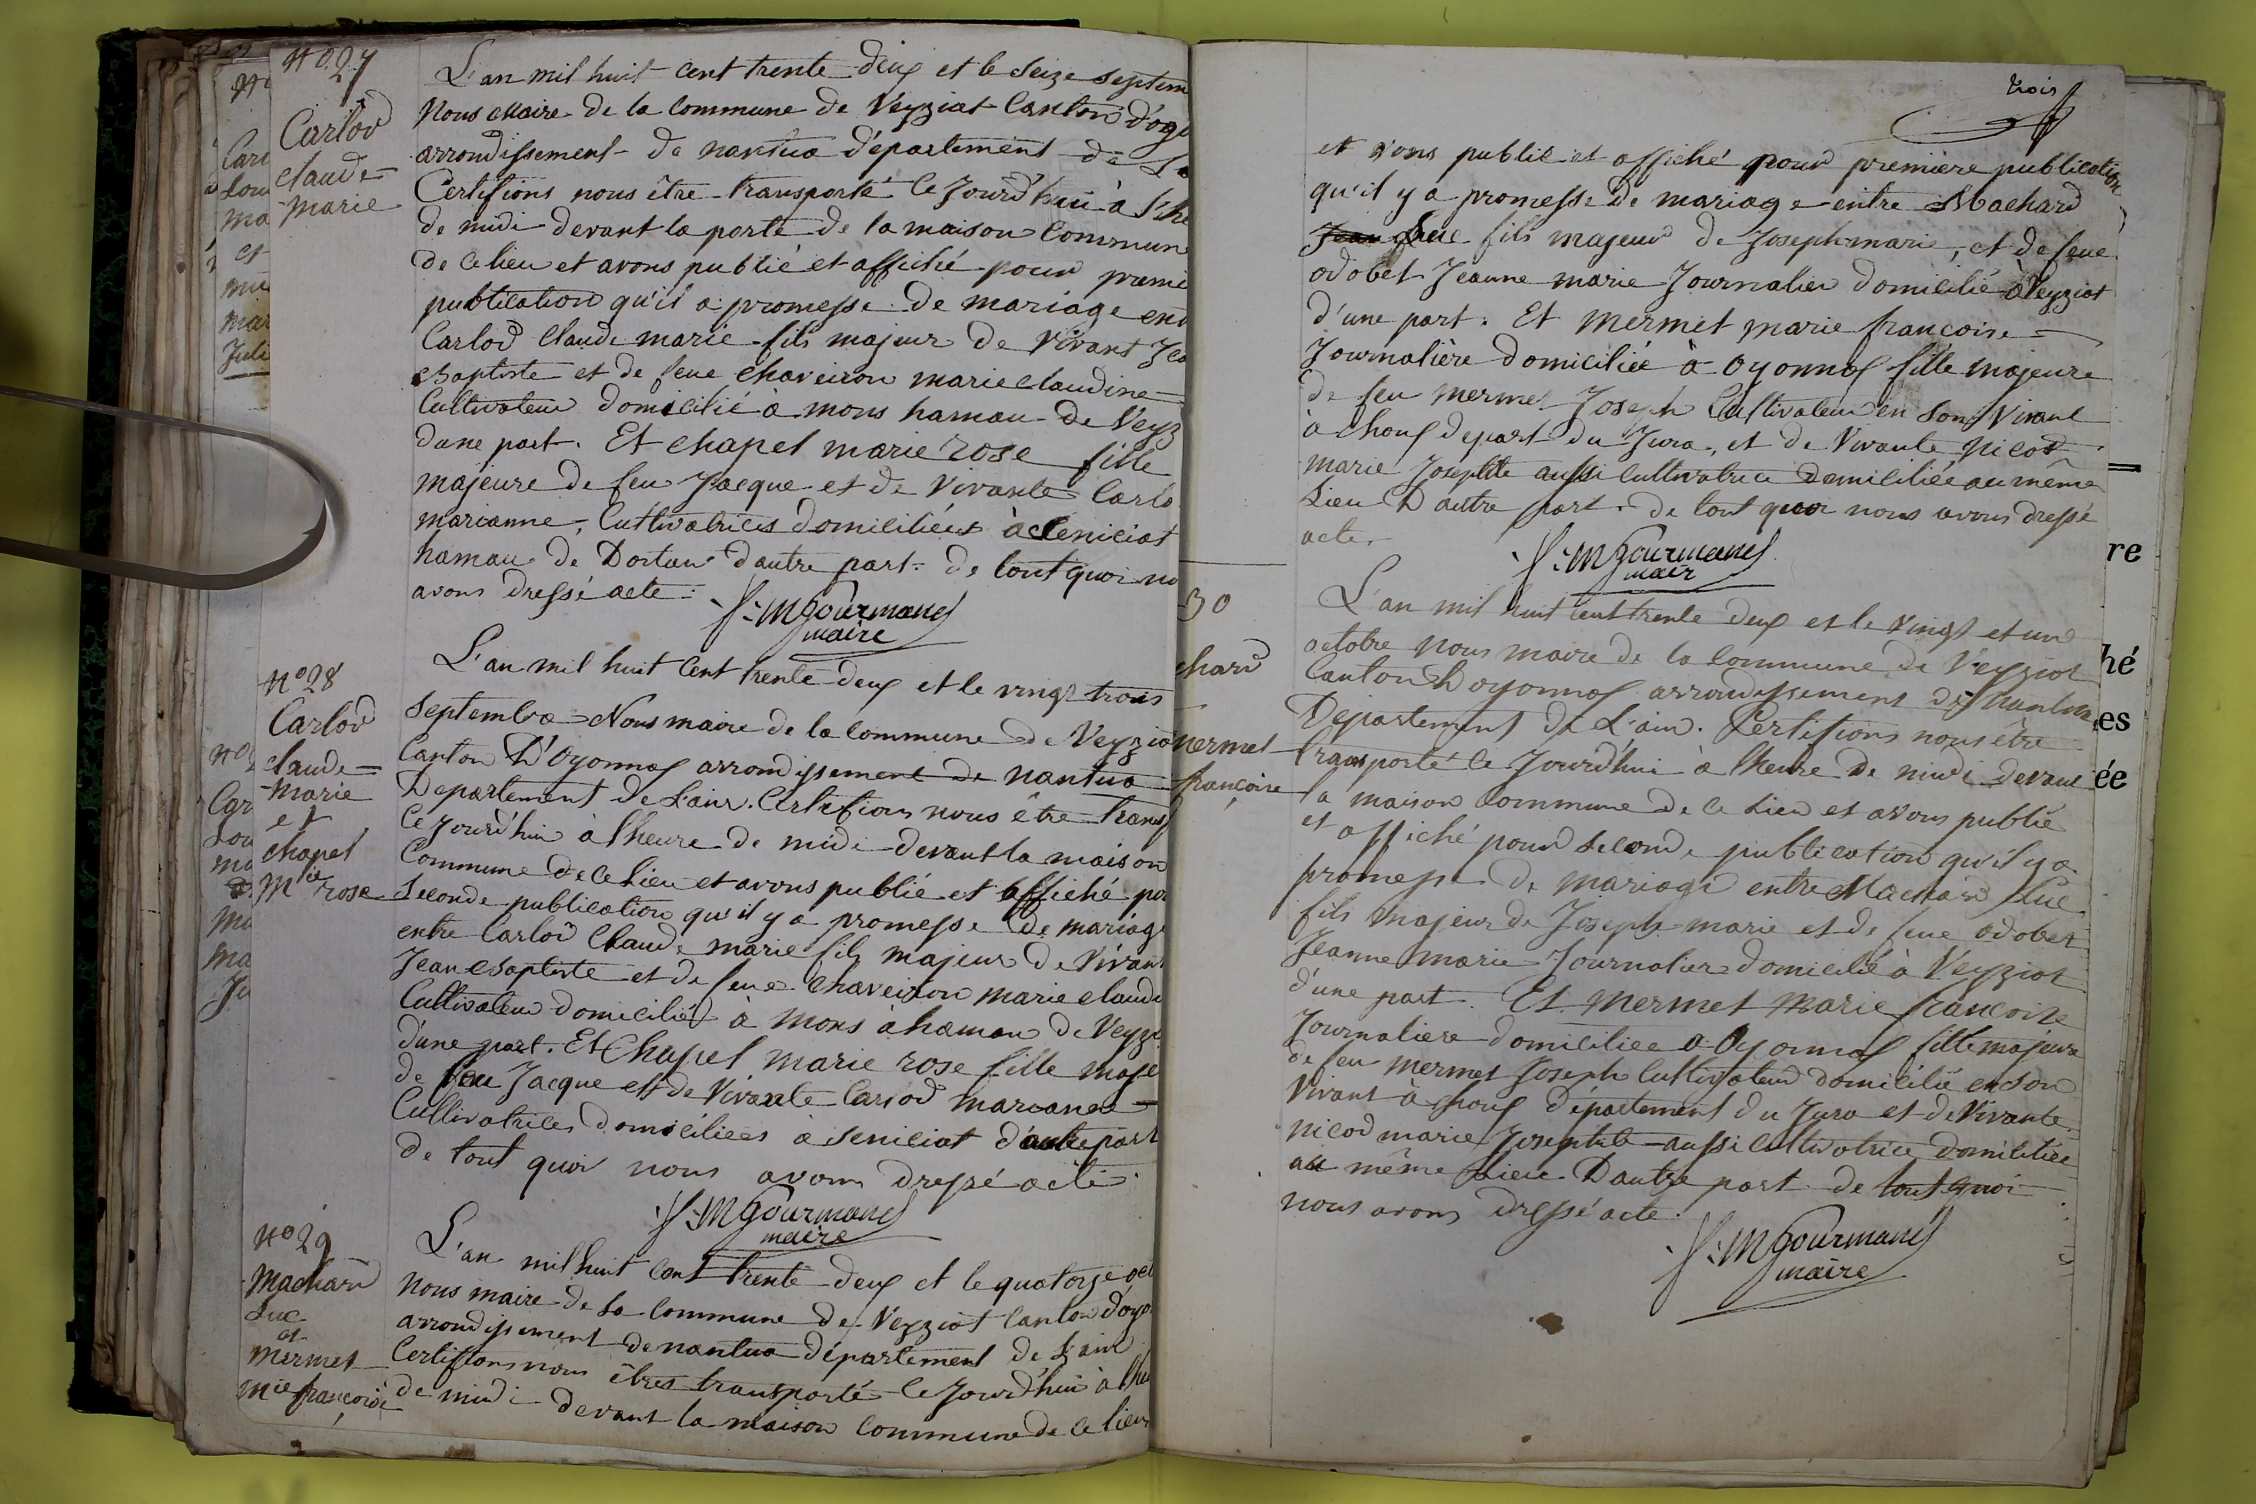 N° 27
Carlod
claude
marie
L'an mil huit cent trente deux et le Seize septem
Nous Maire de la commune de Veyziat Canton d'oyo
arrondissement de nantua département de L
Certifions nous être transporté ce Jourd'hui à l'he
de midi devant la porte de la maison Commun
de ce lieu et avons publié et affiché pour premi
publication qu'il a promesse de mariage ent
Carlod Claude marie fils majeur de Vivant Jea
Baptiste et de feue Chaveiron marie claudine
Cultivateur domicilié à mons hamau de Veyz
dune part. Et chapel marie rose fille
majeure de feu Jacque et de Vivante Carlo
marianne, Cultivatrices domiciliées à Seniciat
hamau de Dortan d'autre part. de tout quoi no
avons dressé acte.
J. M Gourmand
maire
N° 28
Carlod
claude
marie
et
chapel
Mie rose
L'an mil huit Cent trente deux et le vingt trois
Septembre Nous maire de la Commune de Veyzia
Canton D'Oyonnax arrondissement de nantua
Departement de L'ain. Certifions nous être trans
Ce Jourd'hui à l'heure de midi devant la maison
Commune de ce Lieu et avons publié et affiché po
Seconde publication qu'il y a promesse de mariage
entre Carlod Claude marie fils majeur de Vivant
Jean Baptiste et de feue Chaveiron marie claudi
Cultivateur domicilié à mons à hamau de Veyzi
d'une part. Et Chapel marie rose fille maje
de feu Jacque et de Vivante Carlod marianne
Cultivatrices domiciliées à Seniciat d'autre part
de tout quoi nous avons dressé acte.
J. M Gourmand
maire
N° 29
Machard
Luc
et
mermet
Mie françoise
L'an mil huit cent trente deux et le quatorze oct
nous maire de la commune de Veyziat Canton d'oyo
arrondissement de nantua département de L'ain
Certifions nous êtres transporté ce Jourd'hui à l'heu
de midi devant la maison Commune de ce lieu
trois
et avons publié et affiché pour première publication
qu'il y a promesse de mariage entre Machard
Jean Luc fils majeur de Joseph marie, et de feue
odobet Jeanne marie Journalier domicilié à Veyziat
d'une part. Et Mermet marie françoise
Journalière domiciliée à Oyonnax fille majeure
de feu mermet Joseph Cultivateur en Son Vivant
à Choux depart du Jura, et de Vivante Nicod
marie Josephte aussi Cultivatrice Domiciliée au même
Lieu D'autre part. de tout quoi nous avons dressé
acte.
J. M Gourmand
maire
30
chard
mermet
françoise
L'an mil huit cent trente deux et le vingt et un
octobre nous maire de la Commune de Veyziat
Canton D'oyonnax arrondissement de Nantua
Departement de L'ain. Certifions nous être
transporté ce Jourd'hui à l'heure de midi devant
la maison Commune de ce Lieu et avons publié
et affiché pour seconde publication qu'il y a
promesse de mariage entre Machard Luc
fils majeur de Joseph marie et de feue odobet
Jeanne marie Journalier domicilié à Veyziat
d'une part. Et Mermet Marie françoise
Journaliere domiciliée à Oyonnax fille majeure
de feu mermet Joseph Cultivateur domicilié en son
Vivant à Choux département du Jura et de Vivante
nicod marie Josephte aussi Cultivatrice domiciliée
au même Lieu D'autre part de tout quoi
nous avons dressé acte.
J. M Gourmand
maire
re
hé
es
ée